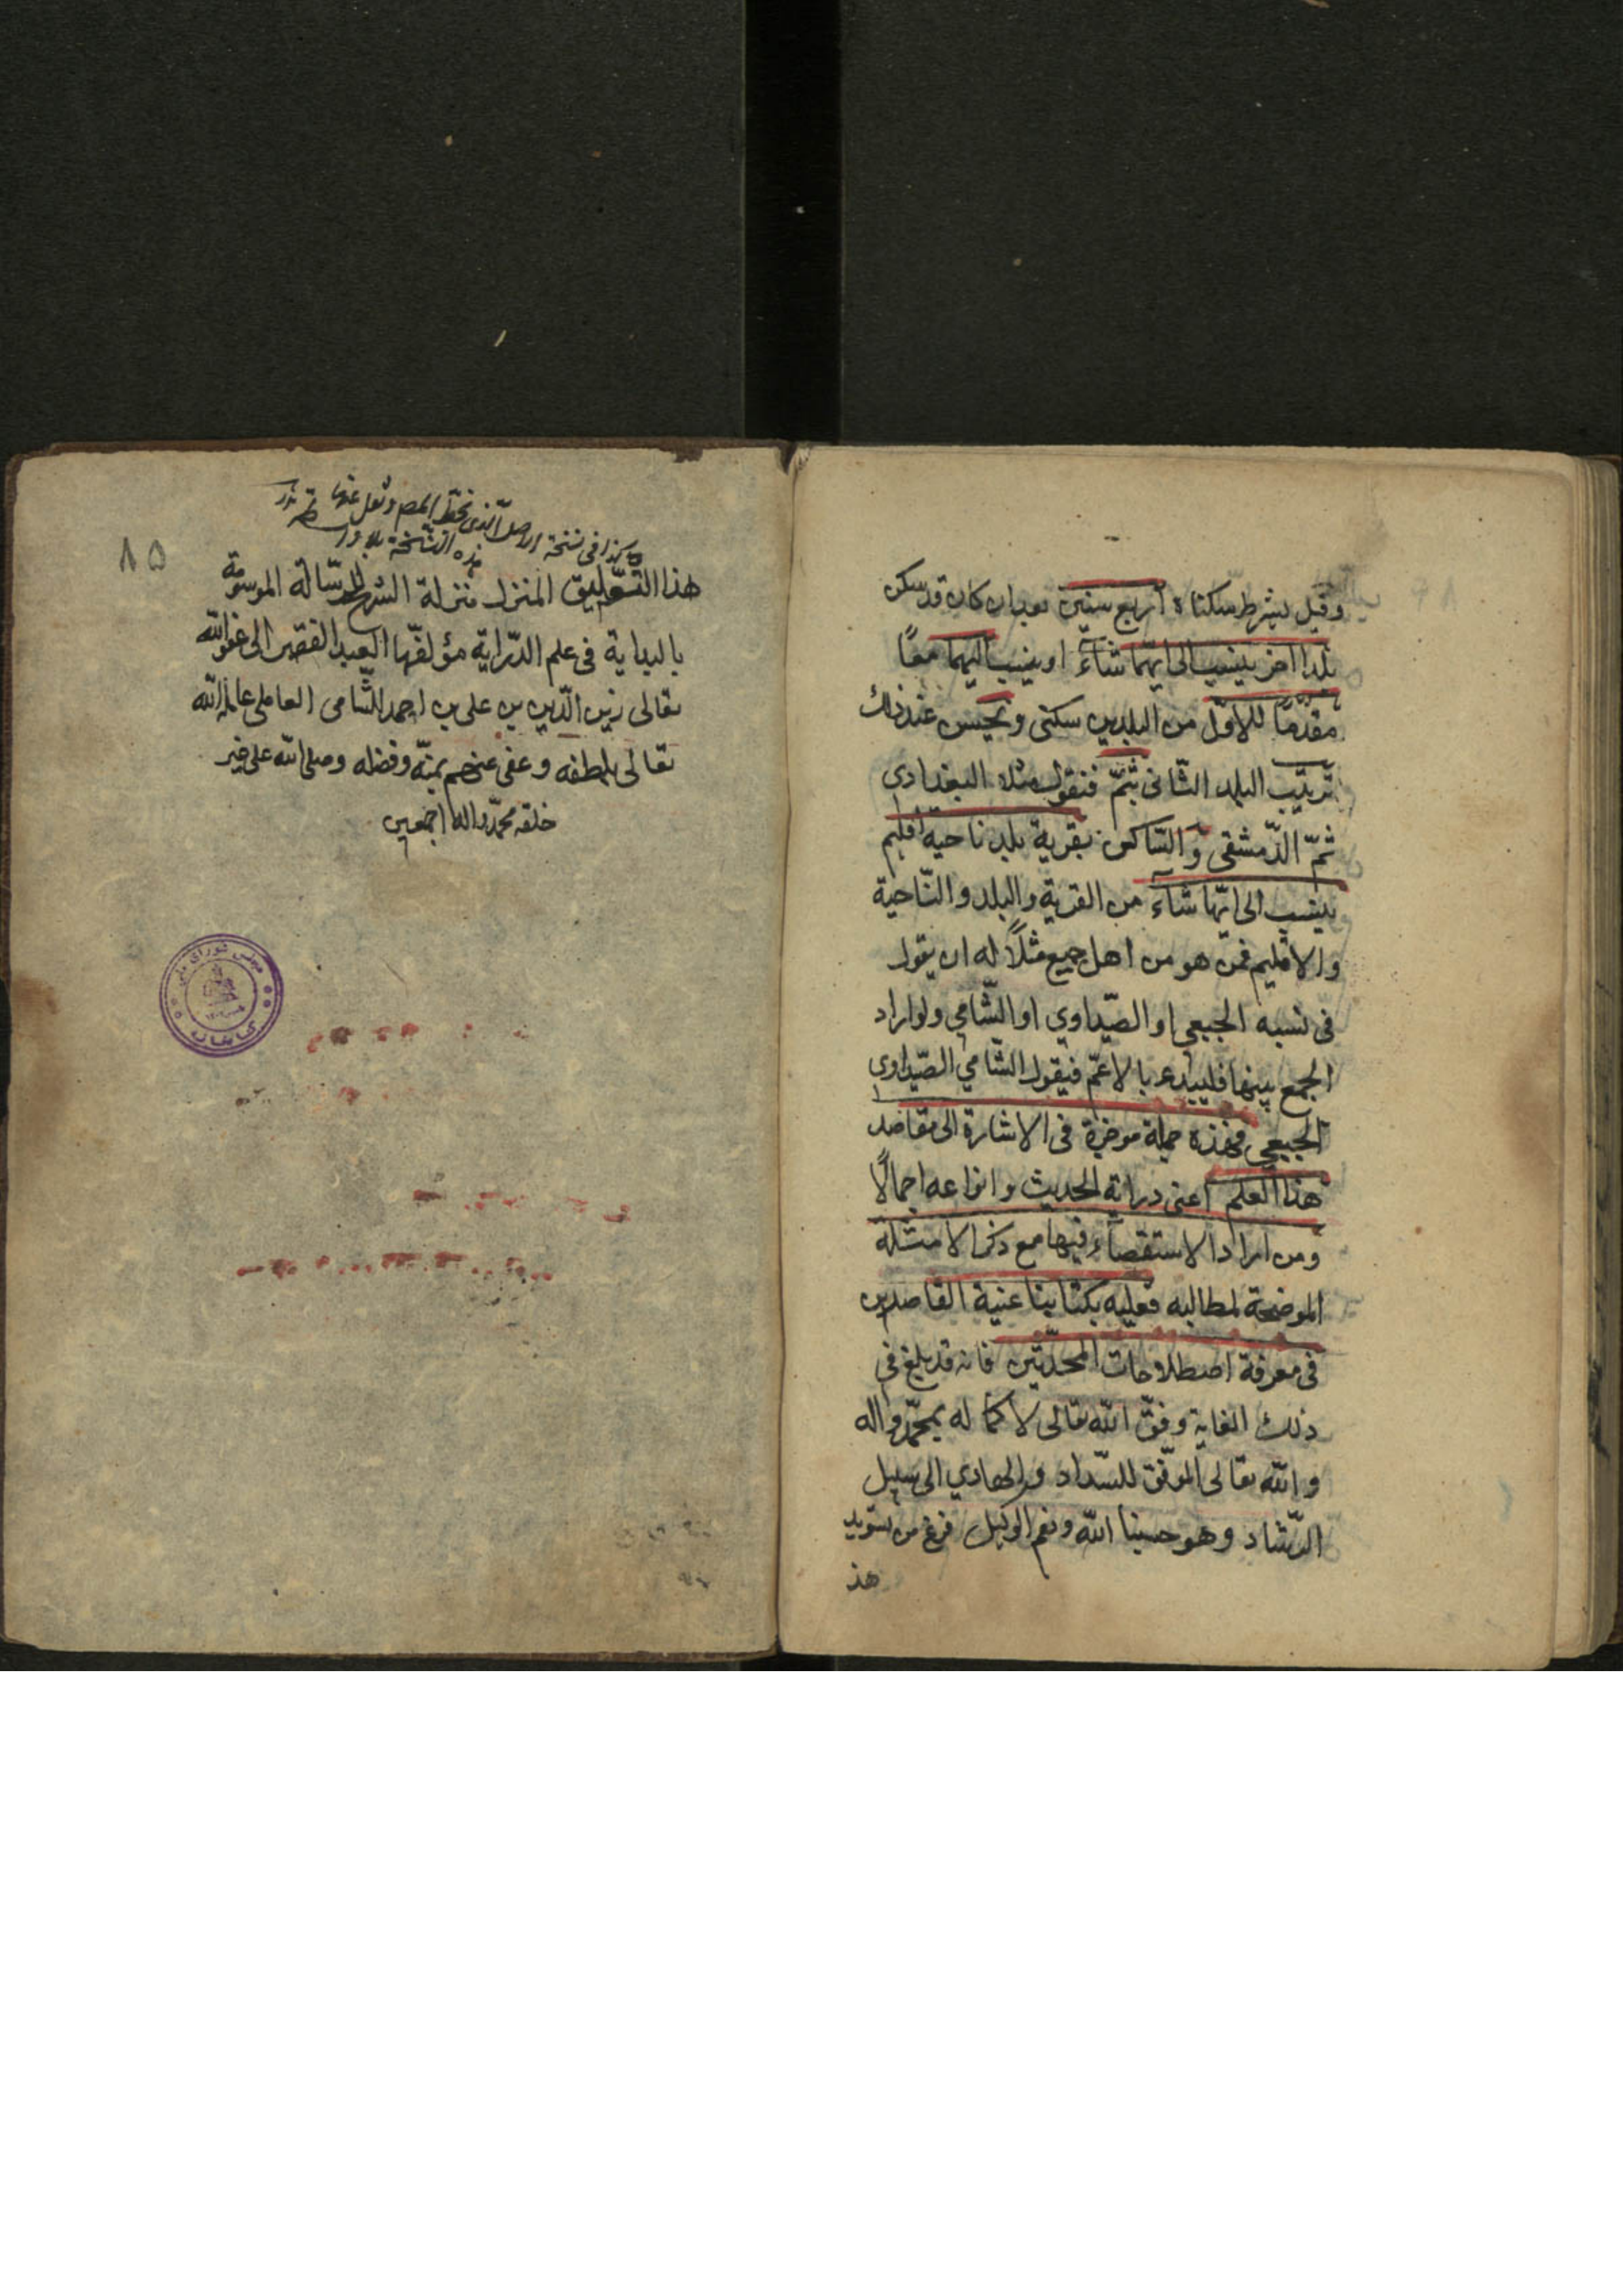 وقيل يشترط سكناه أربع سنين بعد ان كان قد سكن
بلدا اخر ينسب الى ايّهما شآءَ او ينسب اليهما معًا
مقدّمًا للاوّل من البلدين سكنى ويحسن عند ذلك
ترتيب البلد الثّانى بثمّ فنقول مثلا البغدادى
ثمّ الدّمشقى وَالسّاكن بقرية بلد ناحية اقليم
ينسب الى ايّها شآءَ من القرية والبلد والنّاحية
والاقليم فمن هو من اهل جميع مثلًا له ان يقول
فى نسبه الجبعي او الصّيداوي او الشّامي ولو اراد
الجمع بينها فليبدء بالاعمّ فيقول الشّامي الصّيداوى
الجبعي فهذه جملة موجزة فى الاشارة الى مقاصد
هذا العلم اعنى دراية الحديث وانواعه اجمالًا
ومن اراد الاستقصآء فيها مع ذكر الامثلة
الموضحة لمطالبه فعليه بكتابنا غنية القاصدين
فى معرفة اصطلاحات المحدّثين فانه قد بلغ فى
ذلك الغاية وفّق الله تعالى لاكماله بمحمّد واله
والله تعالى الموفّق للسّداد والهادي الى سبيل
الرّشاد وهو حسبنا الله ونعم الوكيل فرغ من تسويد
هذ
٨٥
هكذا فى نسخة الاصل الّذى بخطّ المصـ ونقل عنها
هذه النّسخة
هذا التّعليق المنزل منزلة الشرح للرسّالة الموسومة
بالبداية فى علم الدّراية مؤلفها العبد الفقير الى عفو الله
تعالى زين الدّين بن على بن احمد الشّامى العاملى عامله الله
تعالى بلطفه وعفى عنهم بمنّه وفضله وصلى الله على خير
خلقه محمّد واله اجمعين
مجلس شوراى ملى
كتابخانه